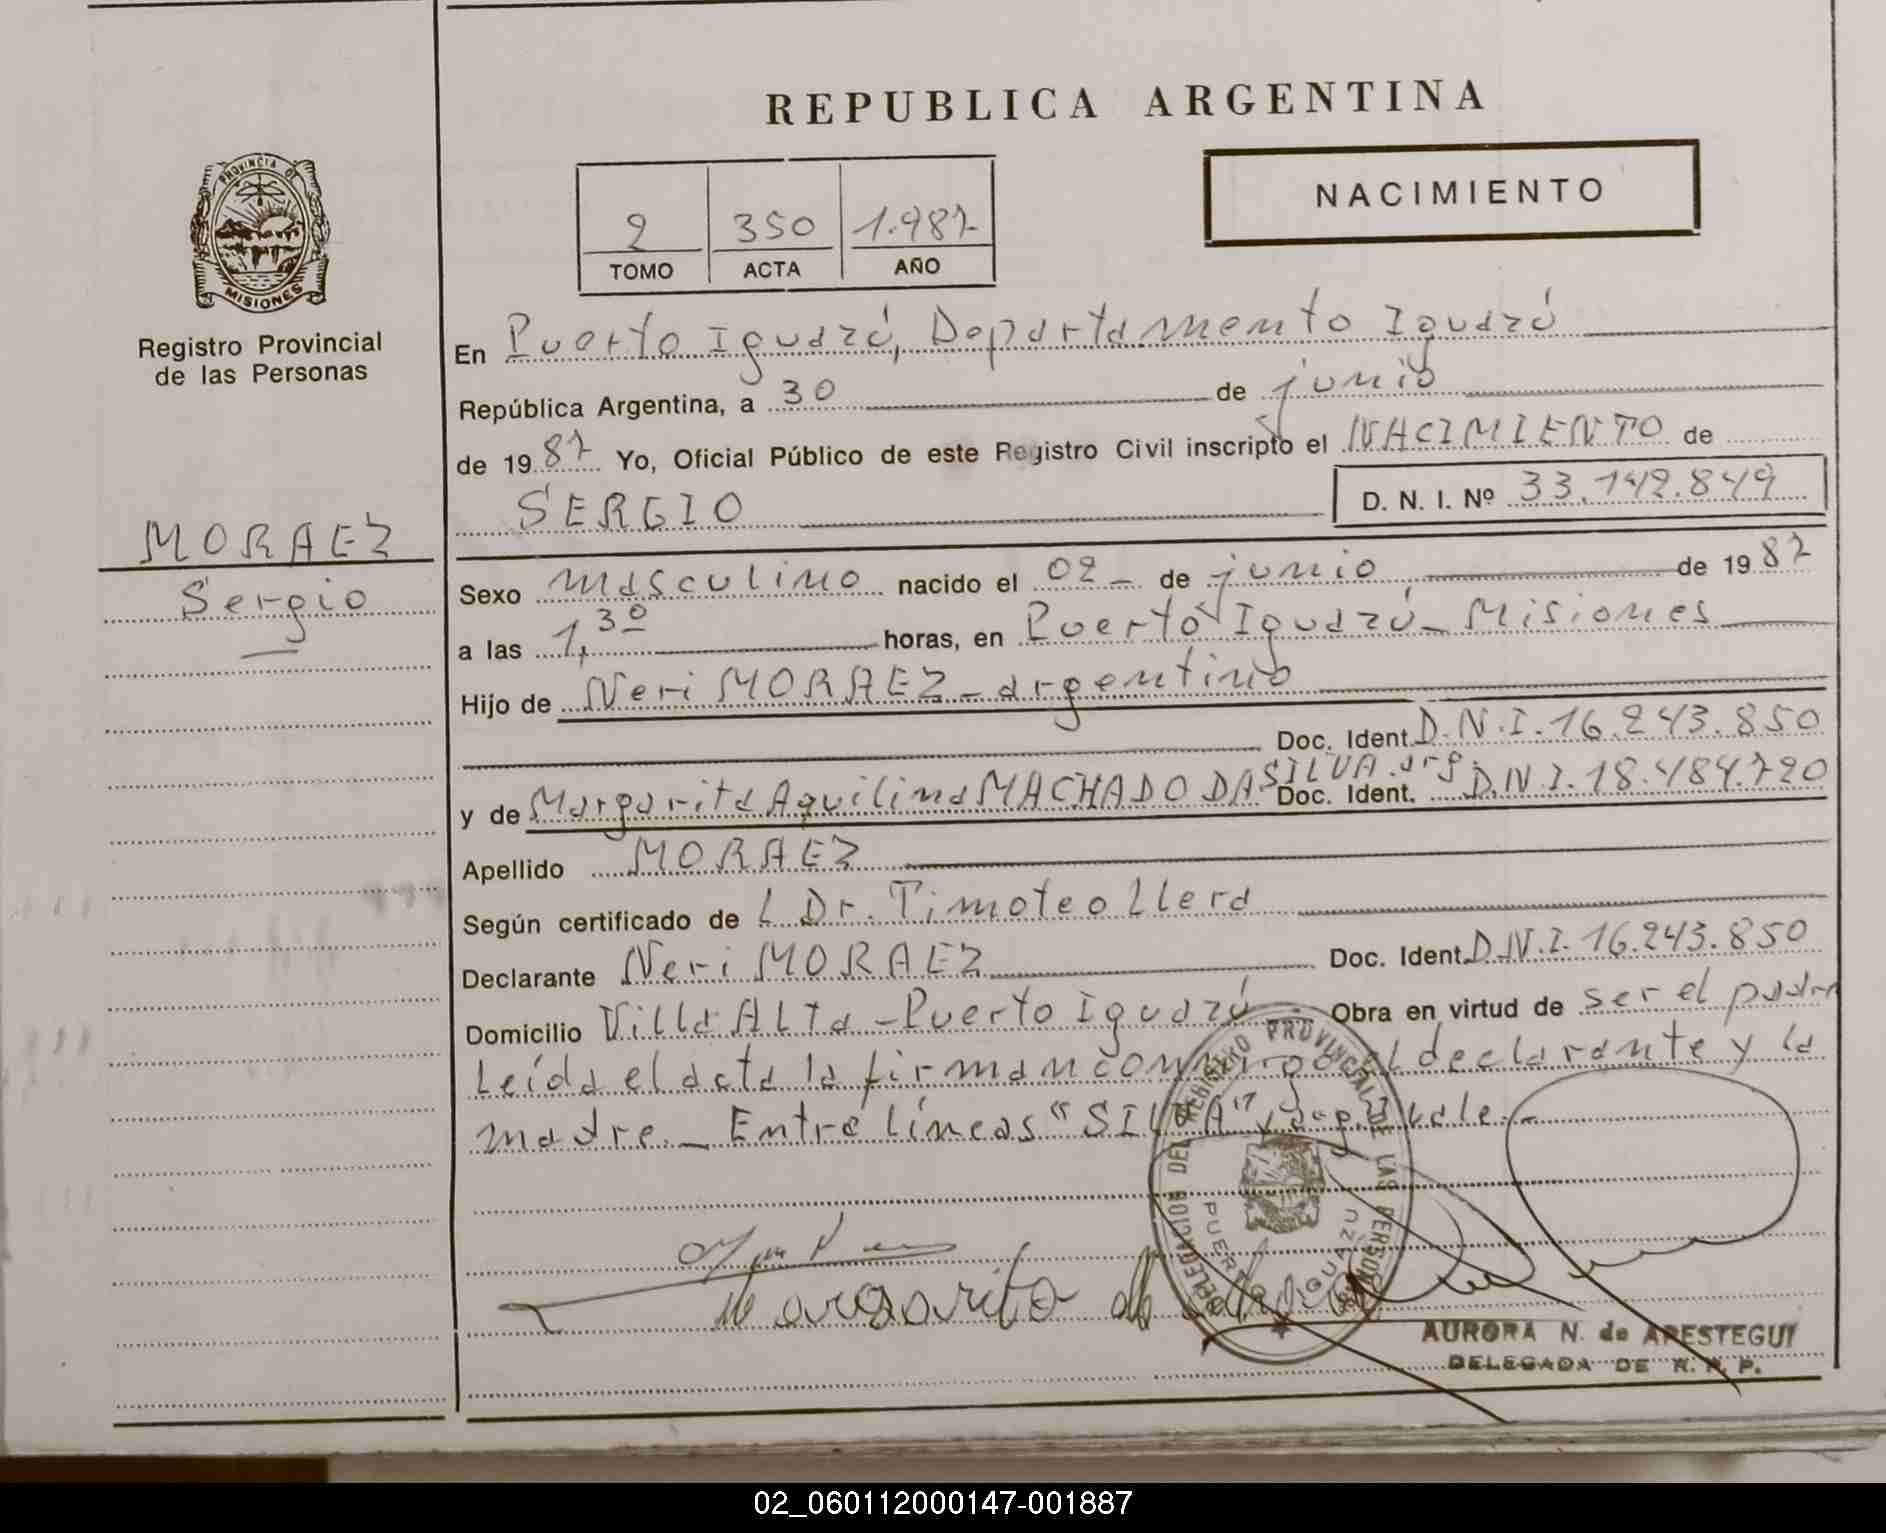 REPUBLICA ARGENTINA
NACIMIENTO
2 350 1.987
TOMO ACTA AÑO
PROVINCIA DE
MISIONES
Registro Provincial
de las Personas
MORAEZ
Sergio
En Puerto Iguazú, Departamento Iguazú
República Argentina, a 30 de junio
de 1987 Yo, Oficial Público de este Registro Civil inscripto el NACIMIENTO de
SERGIO D. N. I. Nº 33.142.849
Sexo masculino nacido el 02 de junio de 1987
a las 1,30 horas, en Puerto Iguazú - Misiones
Hijo de Neri MORAEZ - argentino
Doc. Ident. D.N.I. 16.243.850
y de Margarita Aquilina MACHADO DA SILVA. arg. Doc. Ident. D.N.I. 18.484.720
Apellido MORAEZ
Según certificado de L Dr. Timoteo Llera
Declarante Neri MORAEZ Doc. Ident. D.N.I. 16.243.850
Domicilio Villa ALTA - Puerto Iguazú Obra en virtud de ser el padre
Leída el acta la firman conmigo el declarante y la
madre. - Entre líneas "SILVA", arg. Vale. -
DELEGACION DEL REGISTRO PROVINCIAL DE LAS PERSONAS
PUERTO IGUAZU
Margarita
AURORA N. de ARESTEGUI
DELEGADA DE R. N. P.
02_060112000147-001887